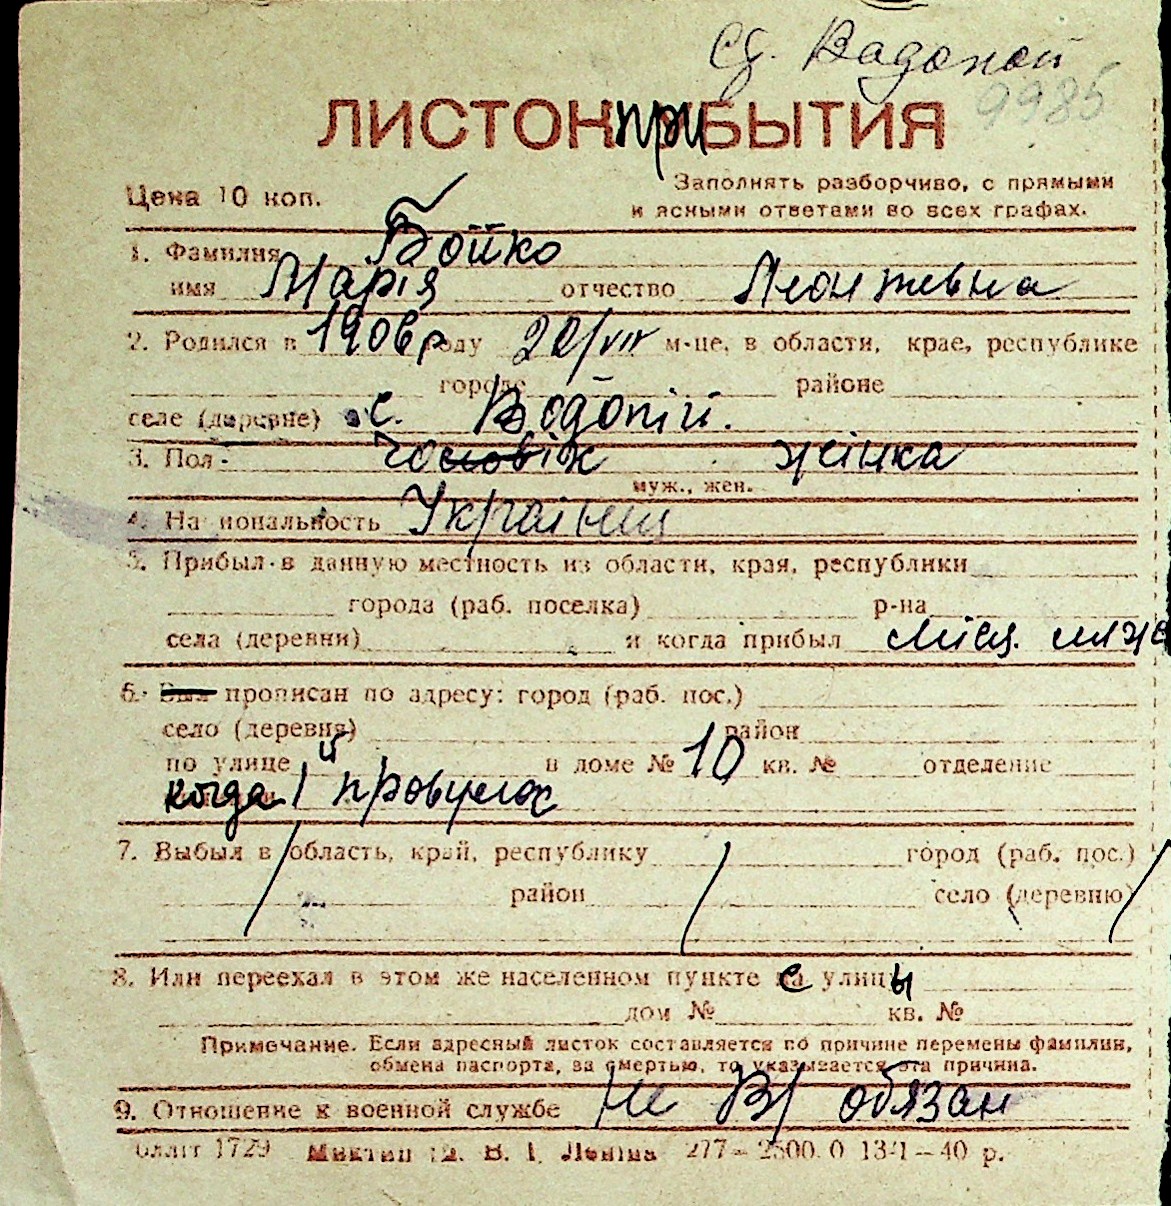 Сд. Водопой
9985
ЛИСТОК ПРИБЫТИЯ
Цена 10 коп.
Заполнять разборчиво, с прямыми
и ясными ответами во всех графах.
1. Фамилия Бойко
имя Марія отчество Леонтевна
2. Родился в 1906 р году 20/VIII м-це, в области, крае, республике
городе районе
селе (деревне) с. Водопій.
3. Пол - Чоловік жінка
муж., жен.
4. Национальность Українец
5. Прибыл в данную местность из области, края, республики
города (раб. поселка) р-на
села (деревни) и когда прибыл місц. меже
6. Был прописан по адресу: город (раб. пос.)
село (деревня) район
по улице в доме № 10 кв. № отделение
когда 1й провулок
7. Выбыл в область, край, республику город (раб. пос.)
район село (деревню)
8. Или переехал в этом же населенном пункте с улицы
дом № кв. №
Примечание. Если адресный листок составляется по причине перемены фамилии,
обмена паспорта, за смертью, то указывается эта причина.
9. Отношение к военной службе не В/обязан
обліт 1729 В. І. Леніна 277–2500.0 13/1–40 р.